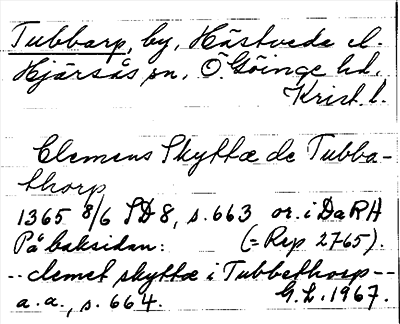 Tubbarp, by, Hästveda el.
Hjärsås sn, Ö. Göinge hd,
Krist. l.
Clemens Skyttæ de Tubba-
thorp
1365 8/6 SD 8, s. 663 or. i DaRH
På baksidan: (= Rep 2765).
-- clemet skyttæ i Tubbethorp --
a.a., s. 664. G.L. 1967.